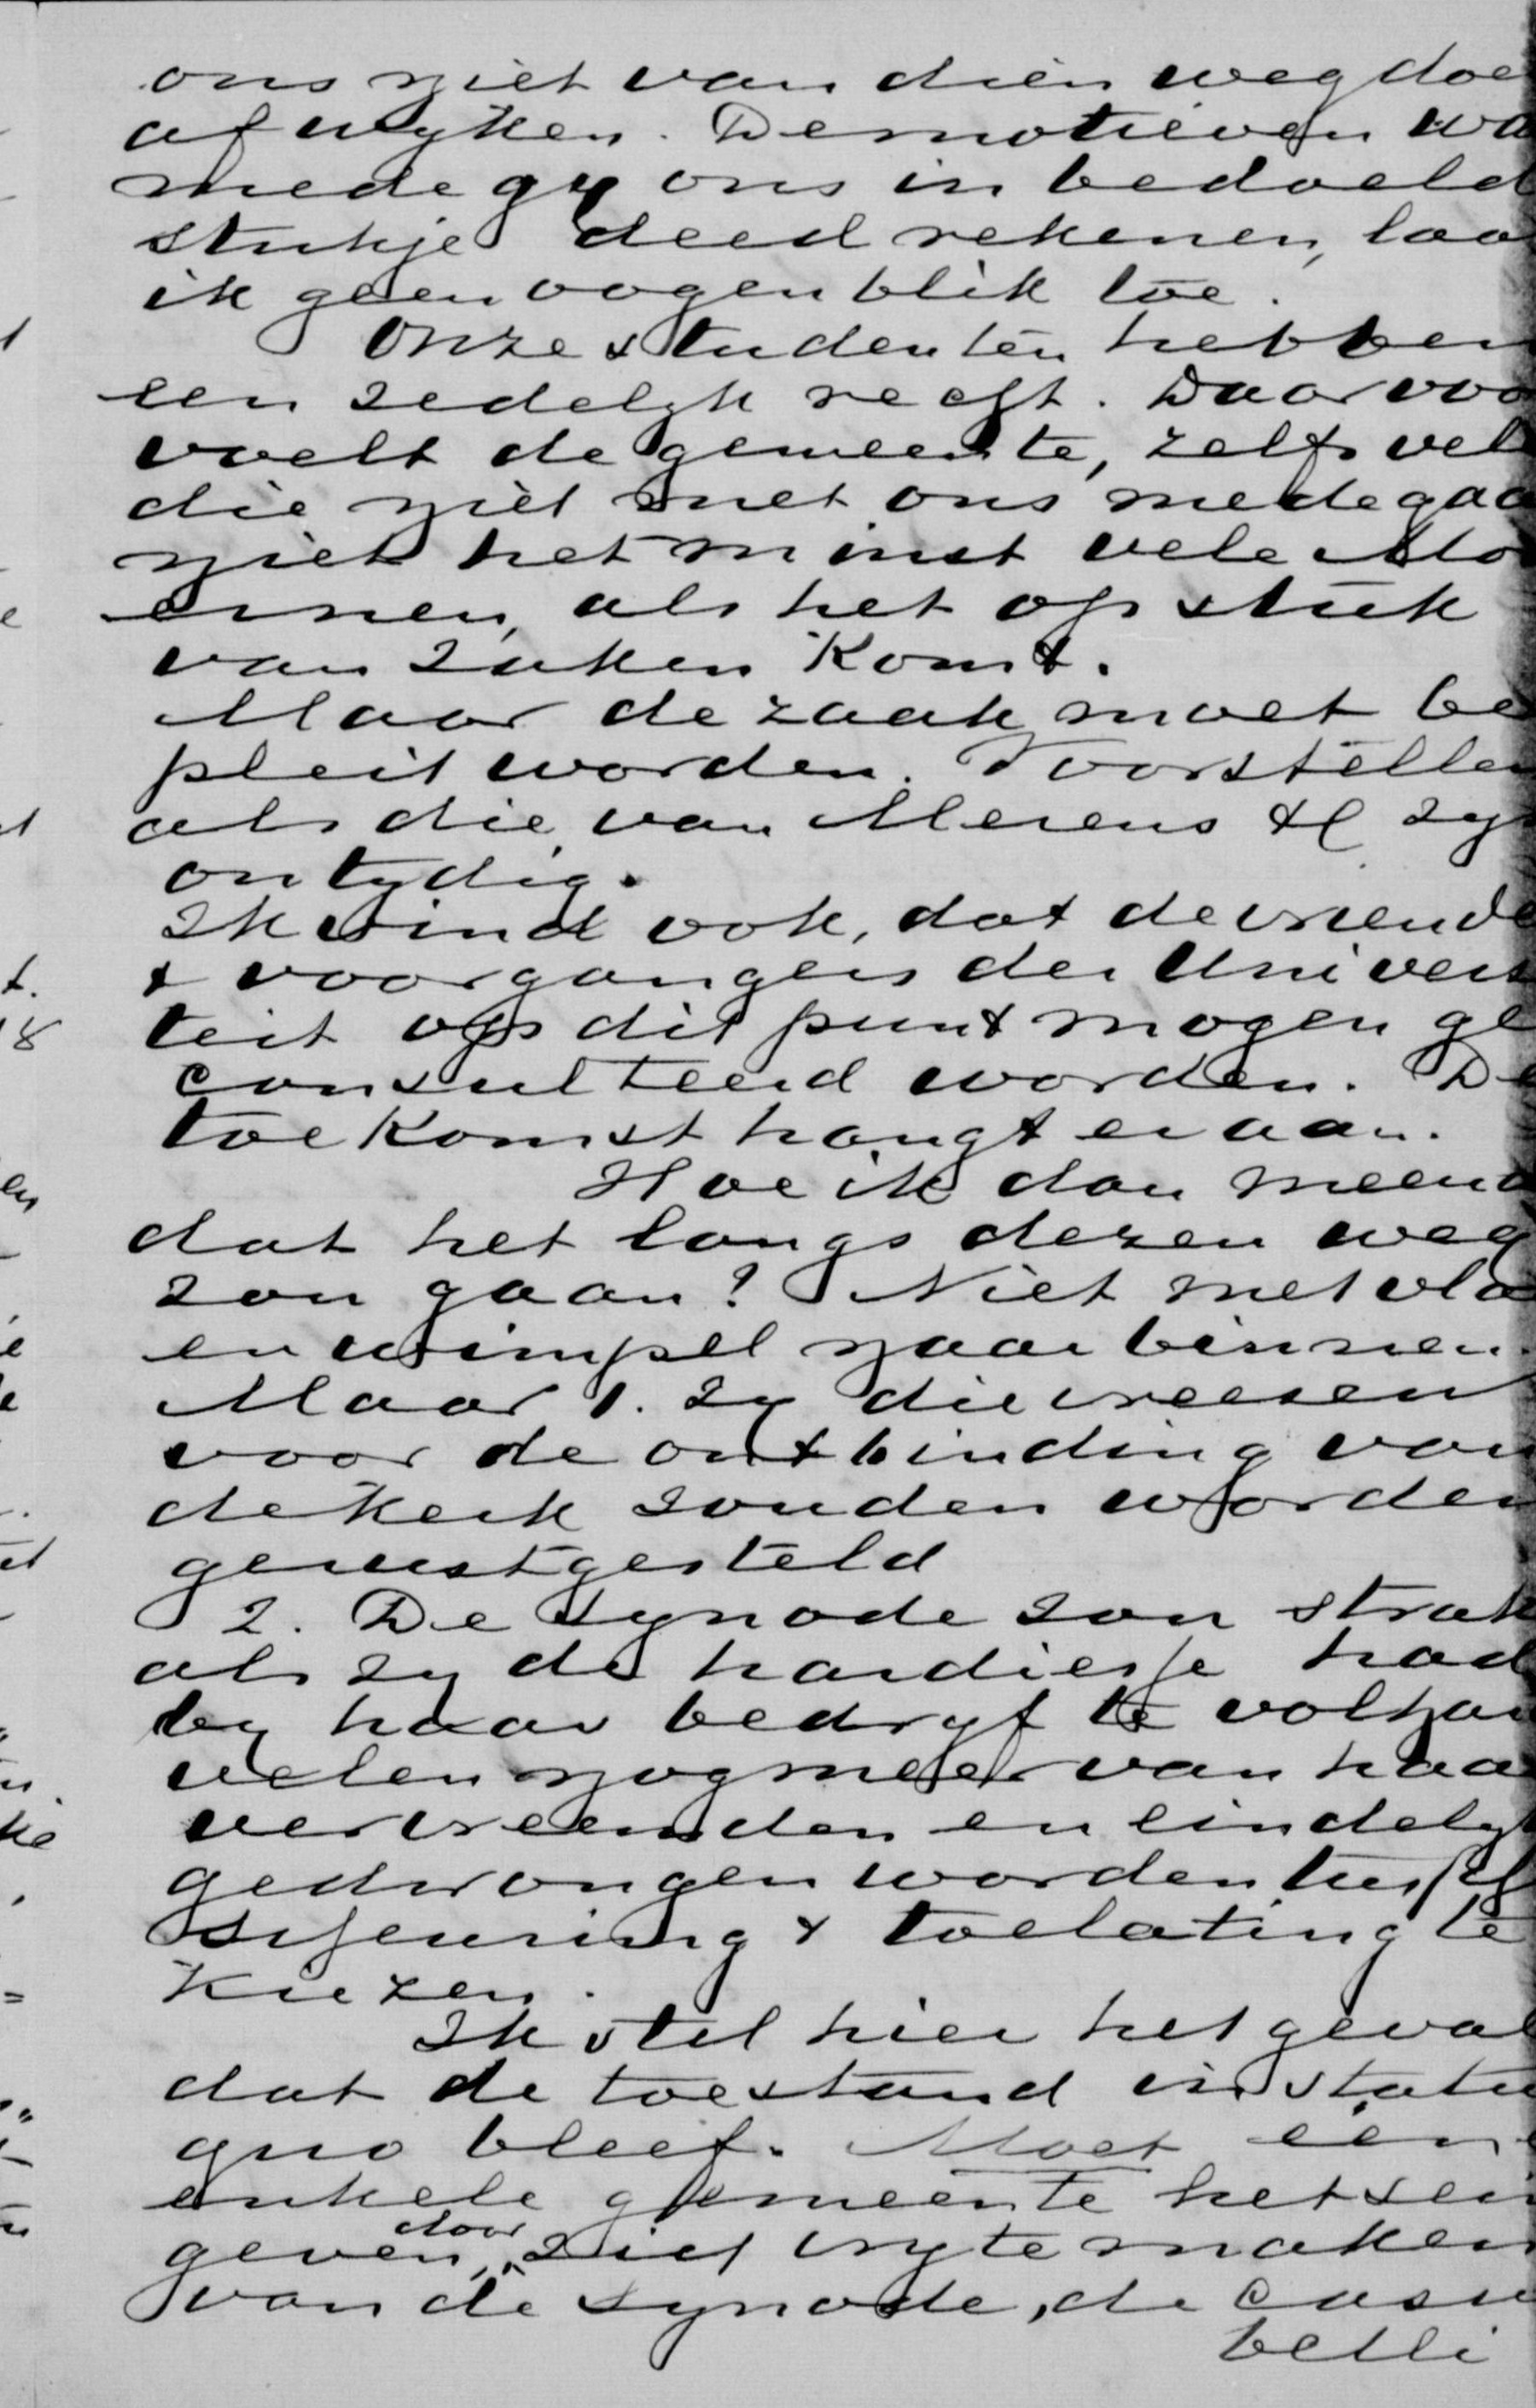 ons niet van dien weg doe
afwyken. De motieven wa
mede gy ons in bedoeld
stukje deed rekenen, laa
ik geen oogenblik toe.
Onze studenten hebben
een zedelyk recht. Daarvoo
voelt de gemeente, zelfs vel
die niet met ons medegaa
niet het minst vele Mo
ernen, als het op stuk
van zaken komt.
Maar de zaak moet be
pleit worden. Voorstellen
als die van Merens &c zyn
ontydig.
Ik vind ook, dat de vriende
& voorgangers der Univers
teit op dit punt mogen ge
consulteerd worden. De
toekomst hangt er aan.
Hoe ik dan meend
dat het langs dezen weg
zou gaan? Niet met vla
en wimpel naar binnen.
Maar 1. zy die vreesen
voor de ontbinding van
de Kerk zouden worden
gerustgesteld
2. De Synode zou strak
als zy de hardiesse had
by haar bedryf te volhar
velen nog meer van haa
vervreemden en eindelyk
gedwongen worden tussch
scheuring & toelating te
kiezen.
Ik stel hier het geval
dat de toestand in statu
quo bleef. Moet één
enkele gemeente het sein
geven, door zich vry te maken
van de synode, de casu
belli